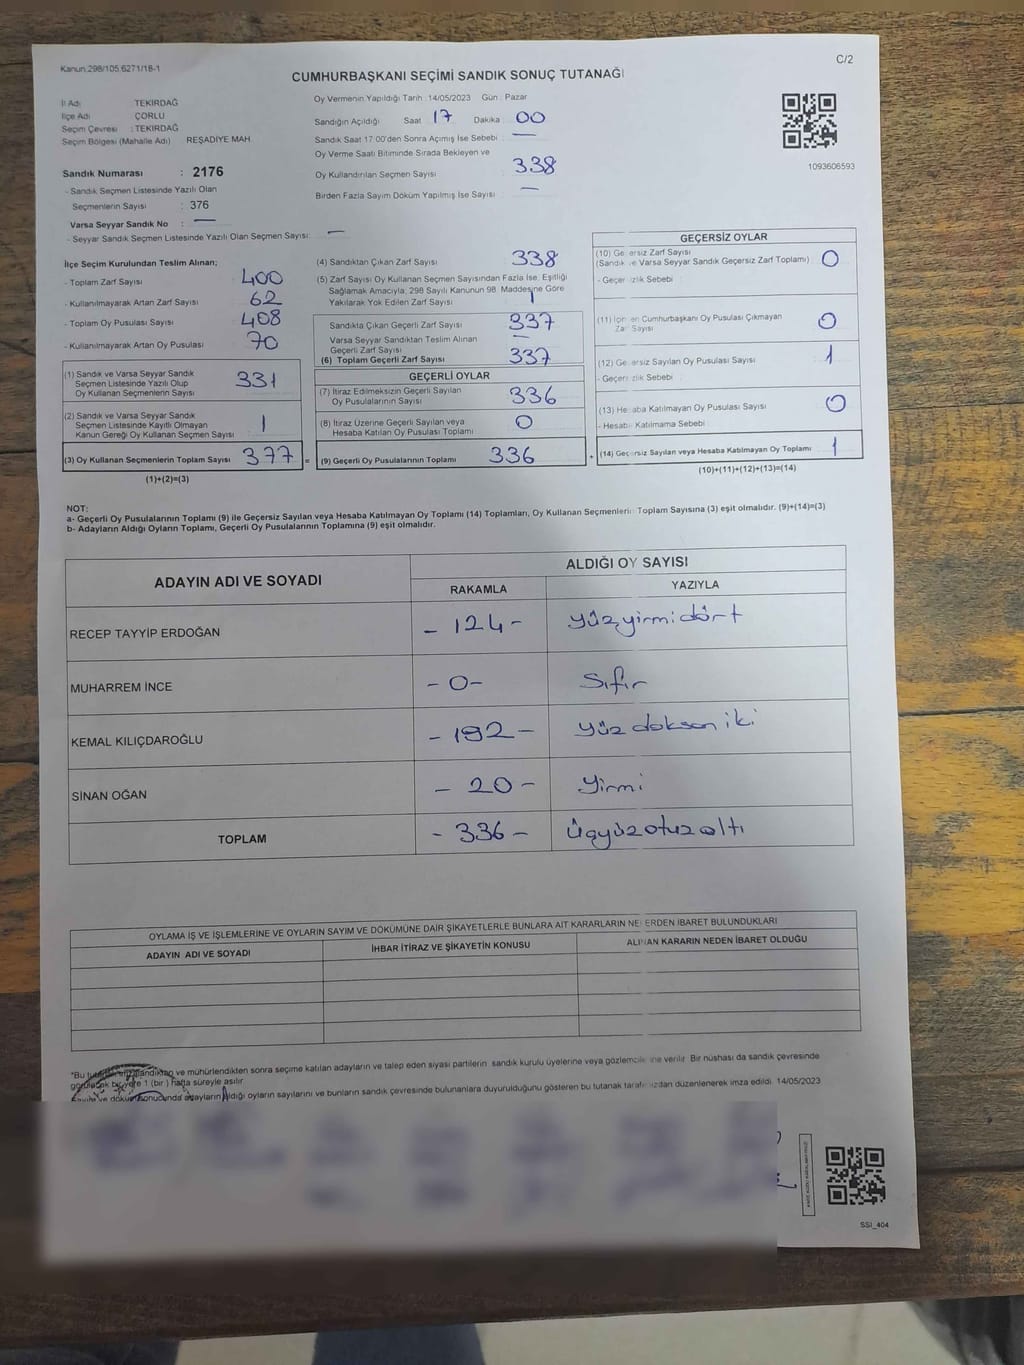 Kanun.298/105.6271/18-1
C/2
CUMHURBAŞKANI SEÇİMİ SANDIK SONUÇ TUTANAĞI
İl Adı : TEKİRDAĞ
İlçe Adı : ÇORLU
Seçim Çevresi : TEKİRDAĞ
Seçim Bölgesi (Mahalle Adı) REŞADİYE MAH.
Sandık Numarası : 2176
- Sandık Seçmen Listesinde Yazılı Olan
Seçmenlerin Sayısı : 376
Varsa Seyyar Sandık No : —
- Seyyar Sandık Seçmen Listesinde Yazılı Olan Seçmen Sayısı: —
Oy Vermenin Yapıldığı Tarih :14/05/2023 Gün : Pazar
Sandığın Açıldığı Saat 17 Dakika 00
Sandık Saat 17:00'den Sonra Açımış İse Sebebi —
Oy Verme Saati Bitiminde Sırada Bekleyen ve
Oy Kullandırılan Seçmen Sayısı 338
Birden Fazla Sayım Döküm Yapılmış İse Sayısı —
1093606593
İlçe Seçim Kurulundan Teslim Alınan;
- Toplam Zarf Sayısı 400
- Kullanılmayarak Artan Zarf Sayısı 62
- Toplam Oy Pusulası Sayısı 408
- Kullanılmayarak Artan Oy Pusulası 70
(1) Sandık ve Varsa Seyyar Sandık
Seçmen Listesinde Yazılı Olup
Oy Kullanan Seçmenlerin Sayısı 331
(2) Sandık ve Varsa Seyyar Sandık
Seçmen Listesinde Kayıtlı Olmayan
Kanun Gereği Oy Kullanan Seçmen Sayısı 1
(3) Oy Kullanan Seçmenlerin Toplam Sayısı 377 =
(1)+(2)=(3)
(4) Sandıktan Çıkan Zarf Sayısı 338
(5) Zarf Sayısı Oy Kullanan Seçmen Sayısından Fazla İse, Eşitliği
Sağlamak Amacıyla, 298 Sayılı Kanunun 98. Maddesine Göre
Yakılarak Yok Edilen Zarf Sayısı 1
Sandıkta Çıkan Geçerli Zarf Sayısı 337
Varsa Seyyar Sandıktan Teslim Alınan
Geçerli Zarf Sayısı —
(6) Toplam Geçerli Zarf Sayısı 337
GEÇERLİ OYLAR
(7) İtiraz Edilmeksizin Geçerli Sayılan
Oy Pusulalarının Sayısı 336
(8) İtiraz Üzerine Geçerli Sayılan veya
Hesaba Katılan Oy Pusulası Toplamı 0
(9) Geçerli Oy Pusulalarının Toplamı 336 +
GEÇERSİZ OYLAR
(10) Geçersiz Zarf Sayısı
(Sandık ve Varsa Seyyar Sandık Geçersiz Zarf Toplamı) 0
- Geçersizlik Sebebi
(11) İçinden Cumhurbaşkanı Oy Pusulası Çıkmayan
Zarf Sayısı 0
(12) Geçersiz Sayılan Oy Pusulası Sayısı 1
- Geçersizlik Sebebi :
(13) Hesaba Katılmayan Oy Pusulası Sayısı 0
- Hesaba Katılmama Sebebi
(14) Geçersiz Sayılan veya Hesaba Katılmayan Oy Toplamı 1
(10)+(11)+(12)+(13)=(14)
NOT:
a- Geçerli Oy Pusulalarının Toplamı (9) ile Geçersiz Sayılan veya Hesaba Katılmayan Oy Toplamı (14) Toplamları, Oy Kullanan Seçmenlerin Toplam Sayısına (3) eşit olmalıdır. (9)+(14)=(3)
b- Adayların Aldığı Oyların Toplamı, Geçerli Oy Pusulalarının Toplamına (9) eşit olmalıdır.
ADAYIN ADI VE SOYADI ALDIĞI OY SAYISI
RAKAMLA YAZIYLA
RECEP TAYYİP ERDOĞAN - 124 - yüzyirmidört
MUHARREM İNCE - 0 - Sıfır
KEMAL KILIÇDAROĞLU - 192 - yüz doksan iki
SİNAN OĞAN - 20 - Yirmi
TOPLAM - 336 - Üçyüzotuzaltı
OYLAMA İŞ VE İŞLEMLERİNE VE OYLARIN SAYIM VE DÖKÜMÜNE DAİR ŞİKAYETLERLE BUNLARA AİT KARARLARIN NELERDEN İBARET BULUNDUKLARI
ADAYIN ADI VE SOYADI İHBAR İTİRAZ VE ŞİKAYETİN KONUSU ALINAN KARARIN NEDEN İBARET OLDUĞU
"Bu tutanak imzalandıktan ve mühürlendikten sonra seçime katılan adayların ve talep eden siyasi partilerin sandık kurulu üyelerine veya gözlemcilerine verilir. Bir nüshası da sandık çevresinde
görülecek bir yere 1 (bir) hafta süreyle asılır.
Sayım ve döküm sonucunda adayların aldığı oyların sayılarını ve bunların sandık çevresinde bulunanlara duyurulduğunu gösteren bu tutanak tarafımızdan düzenlenerek imza edildi. 14/05/2023
SSİ_404